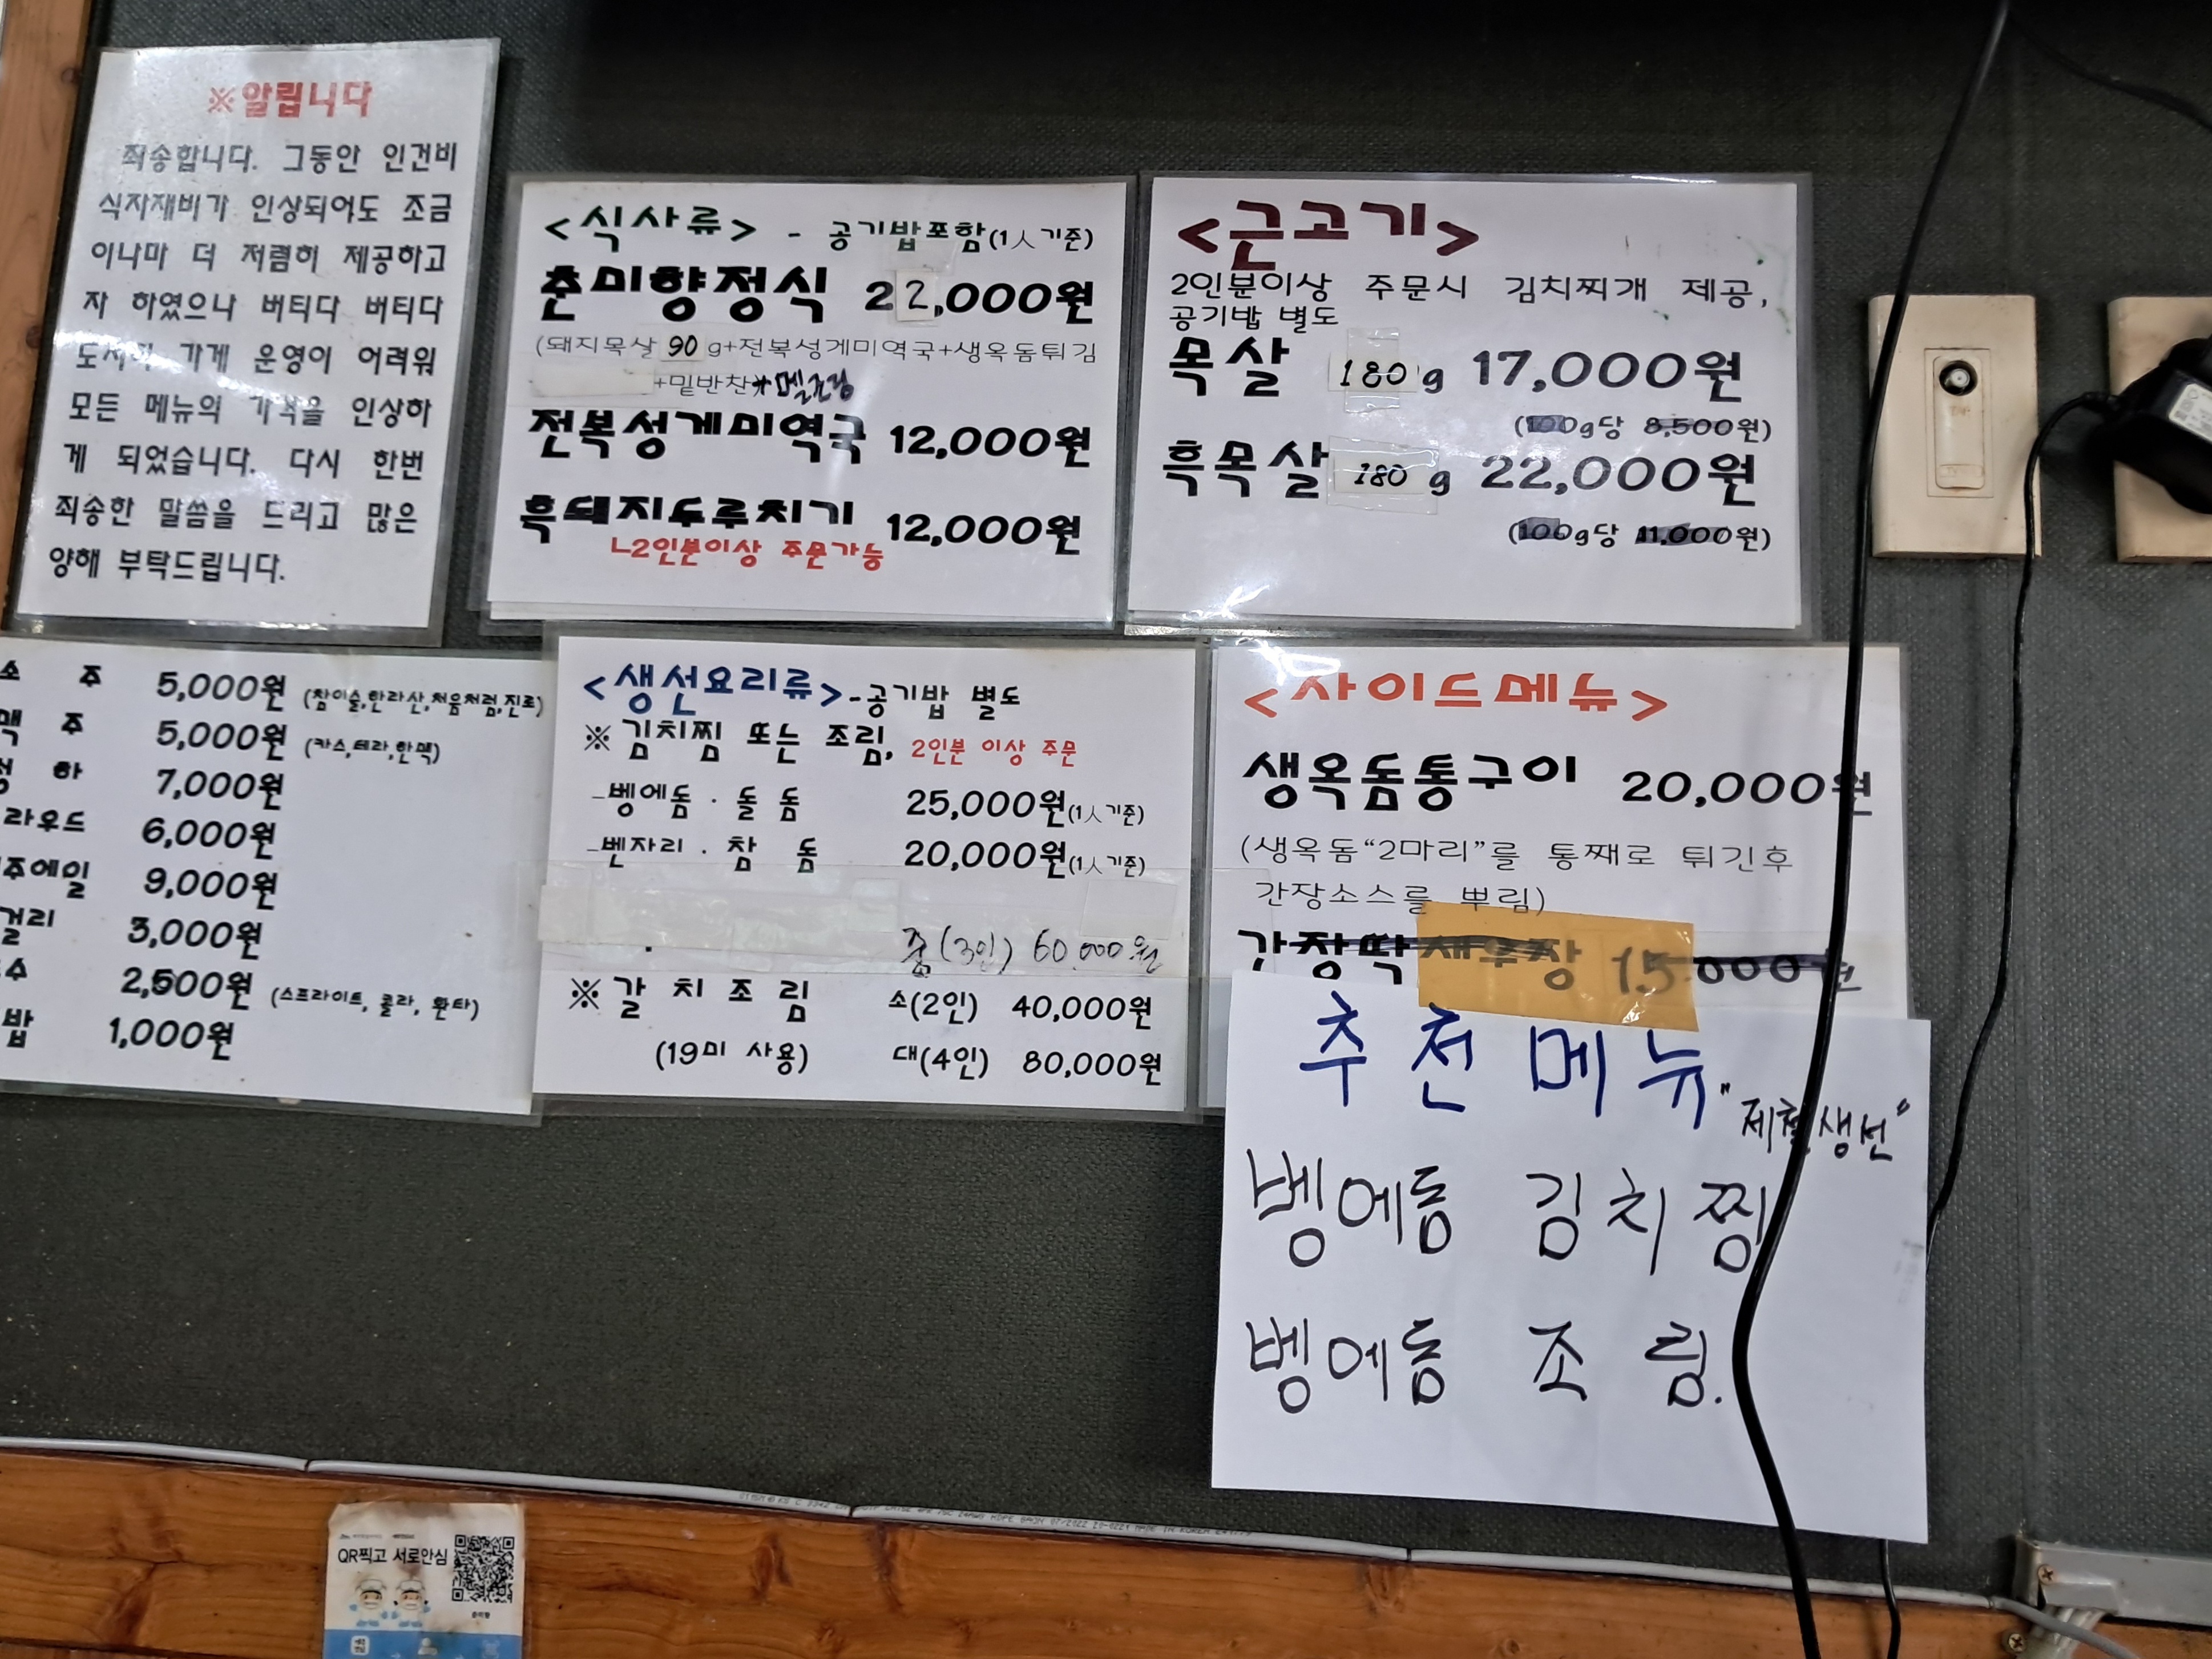 ※알립니다
죄송합니다. 그동안 인건비
식자재비가 인상되어도 조금
이나마 더 저렴히 제공하고
자 하였으나 버티다 버티다
도저히 가게 운영이 어려워
모든 메뉴의 가격을 인상하
게 되었습니다. 다시 한번
죄송한 말씀을 드리고 많은
양해 부탁드립니다.
<식사류> - 공기밥포함(1人기준)
춘미향정식 22,000원
(돼지목살 90g+전복성게미역국+생옥돔튀김
+밑반찬+멜조림
전복성게미역국 12,000원
흑돼지두루치기 12,000원
ㄴ2인분이상 주문가능
<근고기>
2인분이상 주문시 김치찌개 제공,
공기밥 별도
목살 180g 17,000원
(100g당 8,500원)
흑목살 180g 22,000원
(100g당 11,000원)
소 주 5,000원 (참이슬,한라산,처음처럼,진로)
맥 주 5,000원 (카스,테라,한맥)
하 7,000원
라우드 6,000원
주에일 9,000원
걸리 3,000원
수 2,500원 (스프라이트, 콜라, 환타)
밥 1,000원
<생선요리류>-공기밥 별도
※김치찜 또는 조림, 2인분 이상 주문
-벵에돔·돌 돔 25,000원(1人기준)
-벤자리·참 돔 20,000원(1人기준)
중(3인) 60,000원
※갈 치 조 림 소(2인) 40,000원
(19미 사용) 대(4인) 80,000원
<사이드메뉴>
생옥돔통구이 20,000원
(생옥돔“2마리”를 통째로 튀긴후
간장소스를 뿌림)
간장딱새우장 15,000원
추천메뉴 "제철생선"
벵에돔 김치찜
벵에돔 조림.
QR찍고 서로안심